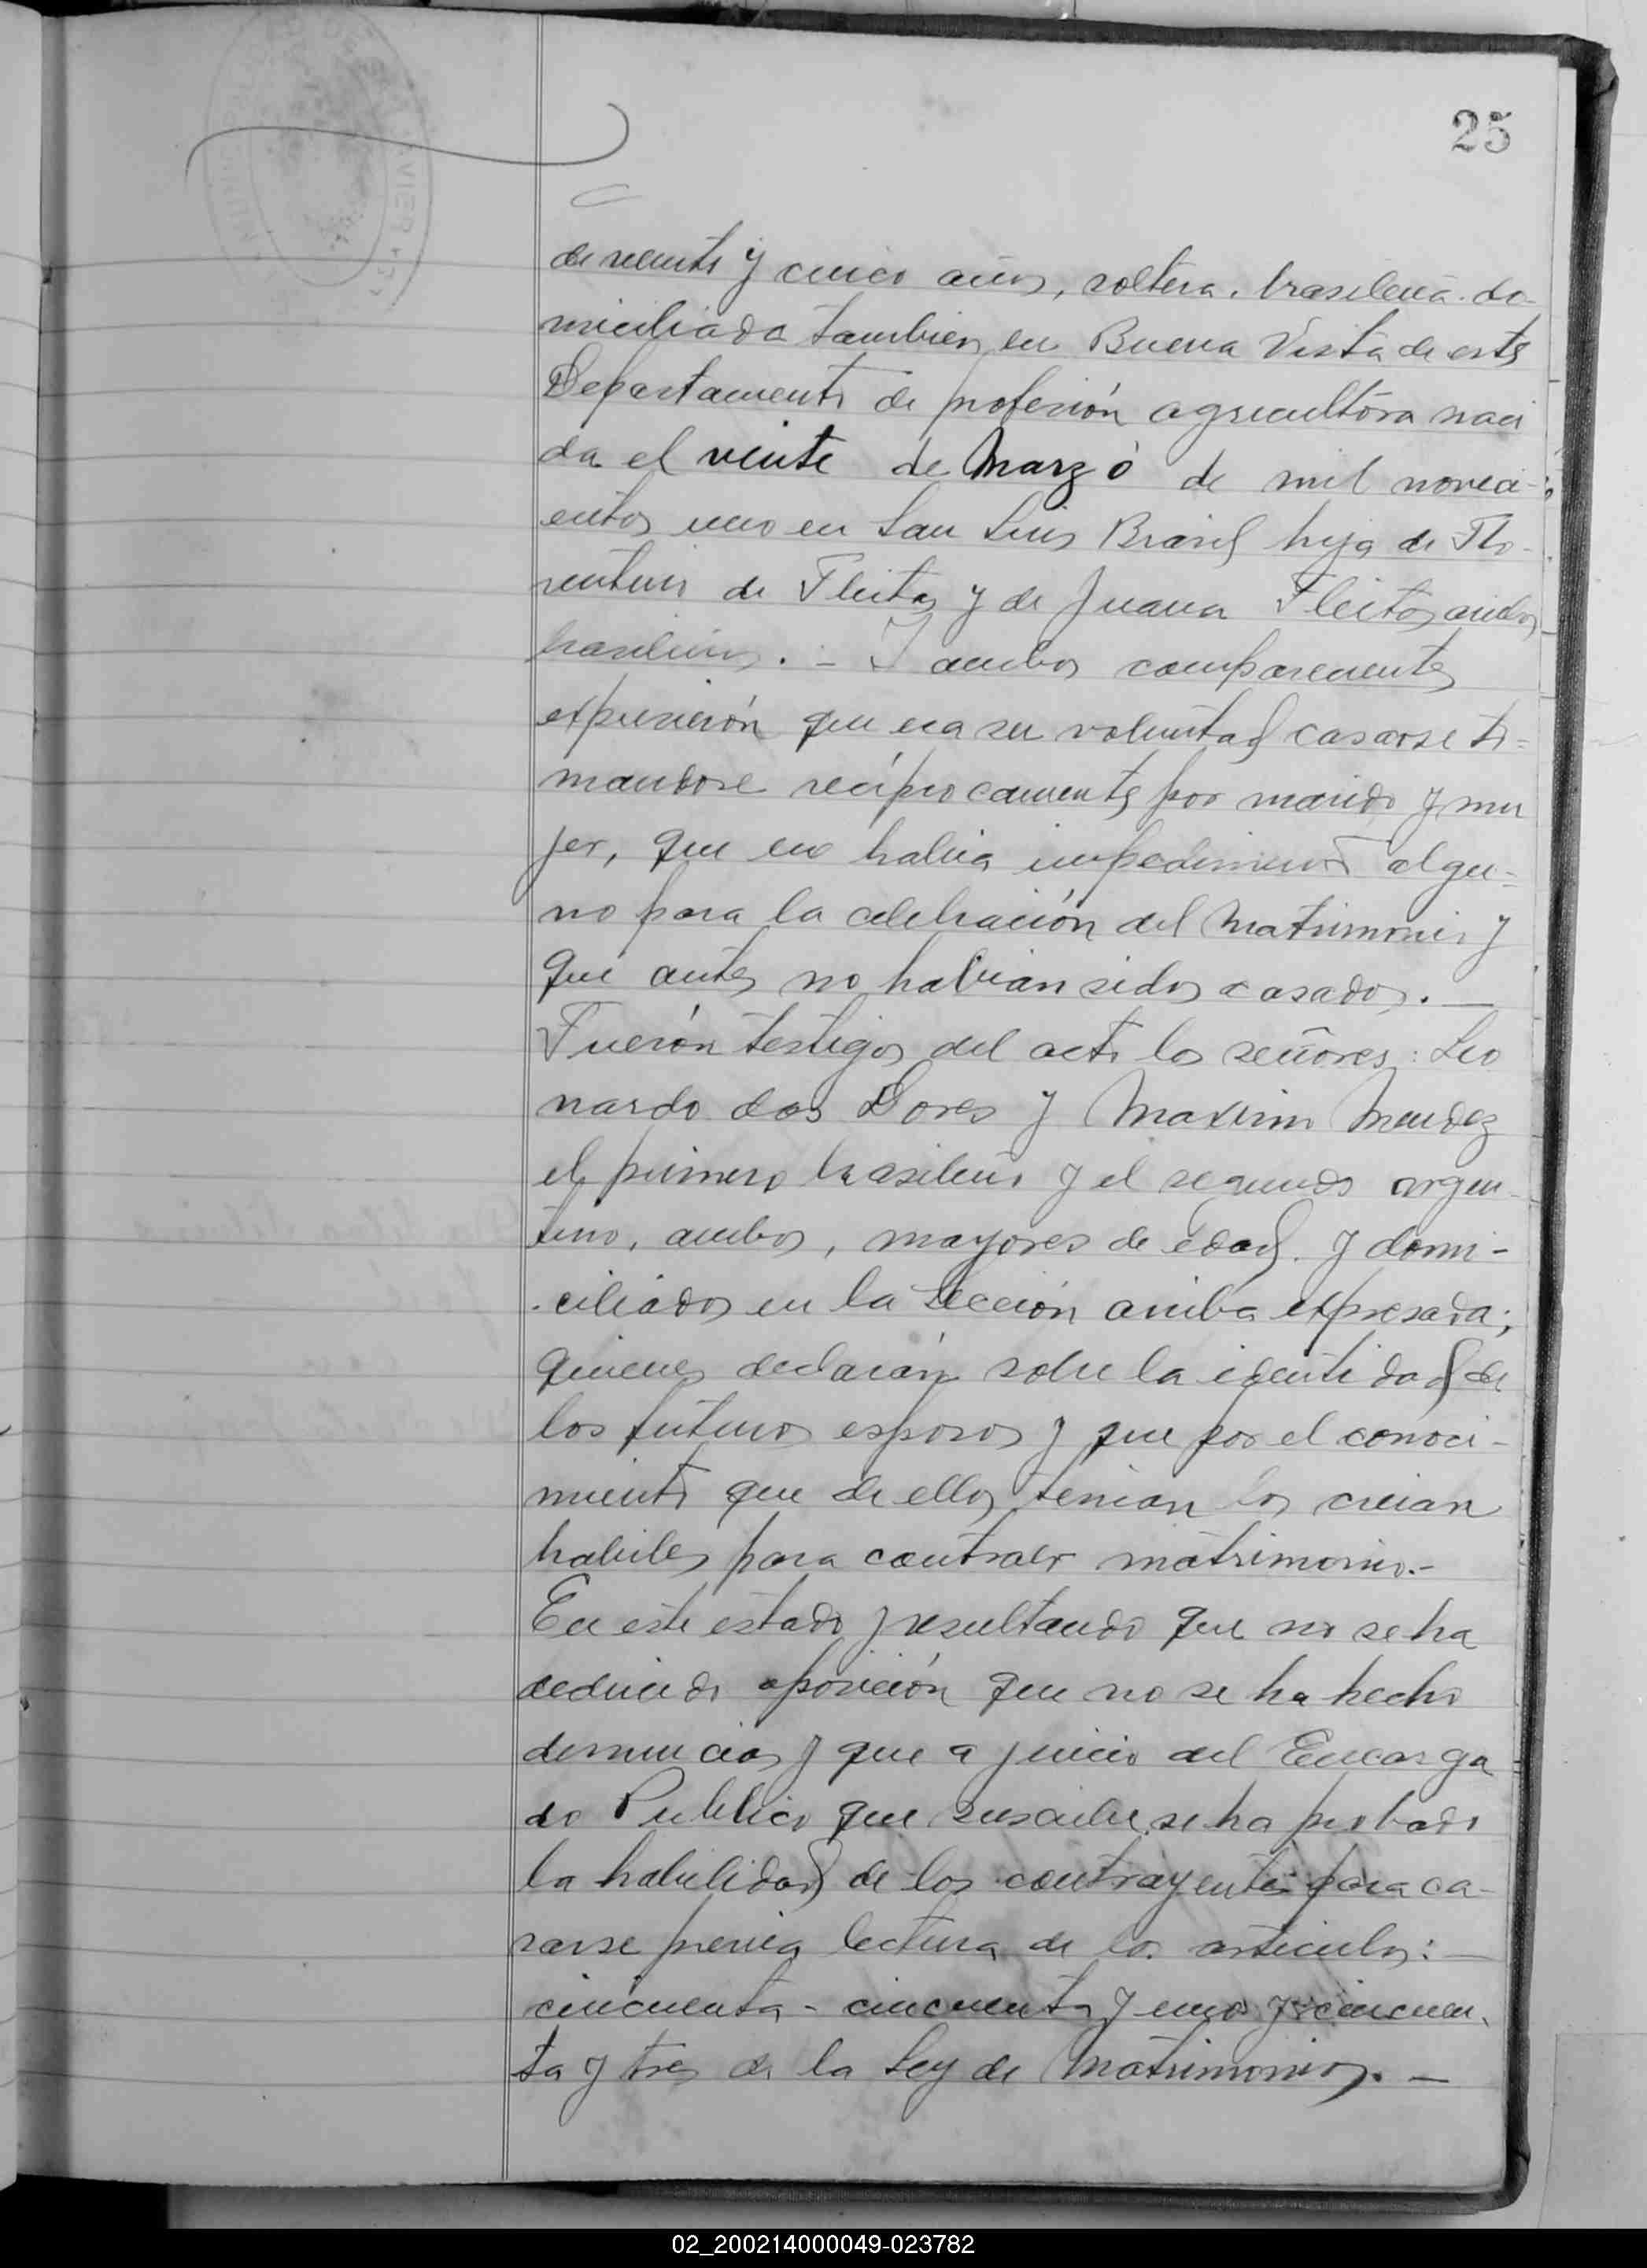 25
de veinte y cinco años, soltera, brasileña do-
miciliada tambien en Buena Vista de este
Departamento de profesión agricultora naci
da el veinte de Marzo de mil noveci-
entos uno en San Luis Brasil hija de Flo-
rentino de Fleitas y de Juana Fleitas ambos
brasileños. - Y ambos comparecientes
expresarón que era su voluntad casarse to=
mandose recíprocamente por marido y mu
jer, que no habia impedimento algu=
no para la celebración del Matrimonio y
que antes no habian sidos casados. —
Fuerón testigos del acto los señores: Leo
nardo dos Dores y Maximo Mendez
el primero brasileño y el segundo argen-
tino, ambos, mayores de edad y domi-
ciliados en la Sección arriba expresada;
quienes declarán sobre la identidad de
los futuros esposos y que por el conoci-
miento que de ellos tenian los creian
habiles para contraer matrimonio.-
En este estado y resultando que no se ha
deducido oposición que no se ha hecho
denuncias y que a juicio del Encarga
do Publico que suscribe se ha probado
la habilidad de los contrayentes para ca-
sarse previa lectura de los articulos: —
cincuenta - cincuenta y uno y cincuen-
ta y tres de la Ley de Matrimonios. —
02_200214000049-023782